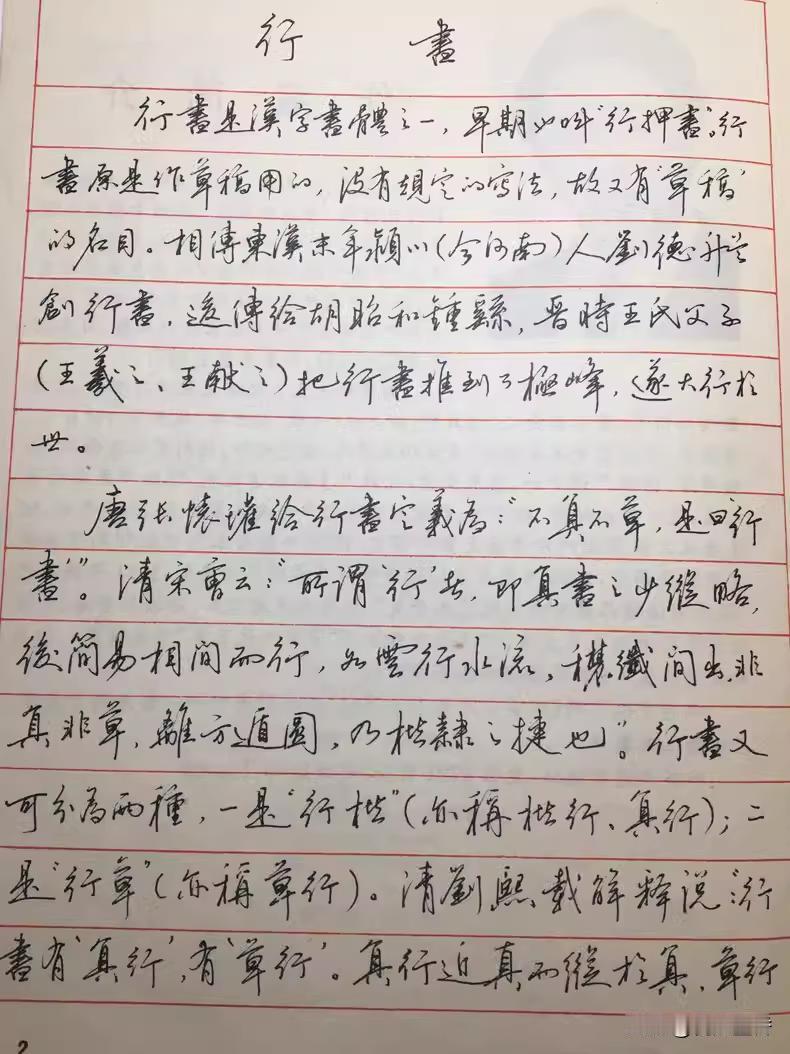 行書
行書是漢字書體之一，早期亦叫“行押書”，行
書原是作草稿用的，没有規定的寫法，故又有“草稿”
的名目。相傳東漢末年潁川（今河南）人劉德升首
創行書，後傳給胡昭和鍾繇，晋時王氏父子
（王羲之、王献之）把行書推到了極峰，遂大行於
世。
唐張懷瓘給行書定義為：“不真不草，是曰‘行
書’”。清宋曹云：“所謂‘行’者，即真書之少縱略，
後簡易相間而行，如雲行水流，穠纖間出，非
真非草，離方遁圓，乃楷隸之捷也”。行書又
可分為兩種，一是“行楷”（亦稱楷行、真行）；二
是“行草”（亦稱草行）。清劉熙載解释说：“行
書有‘真行’，有‘草行’。真行近真而縱於真，草行
2